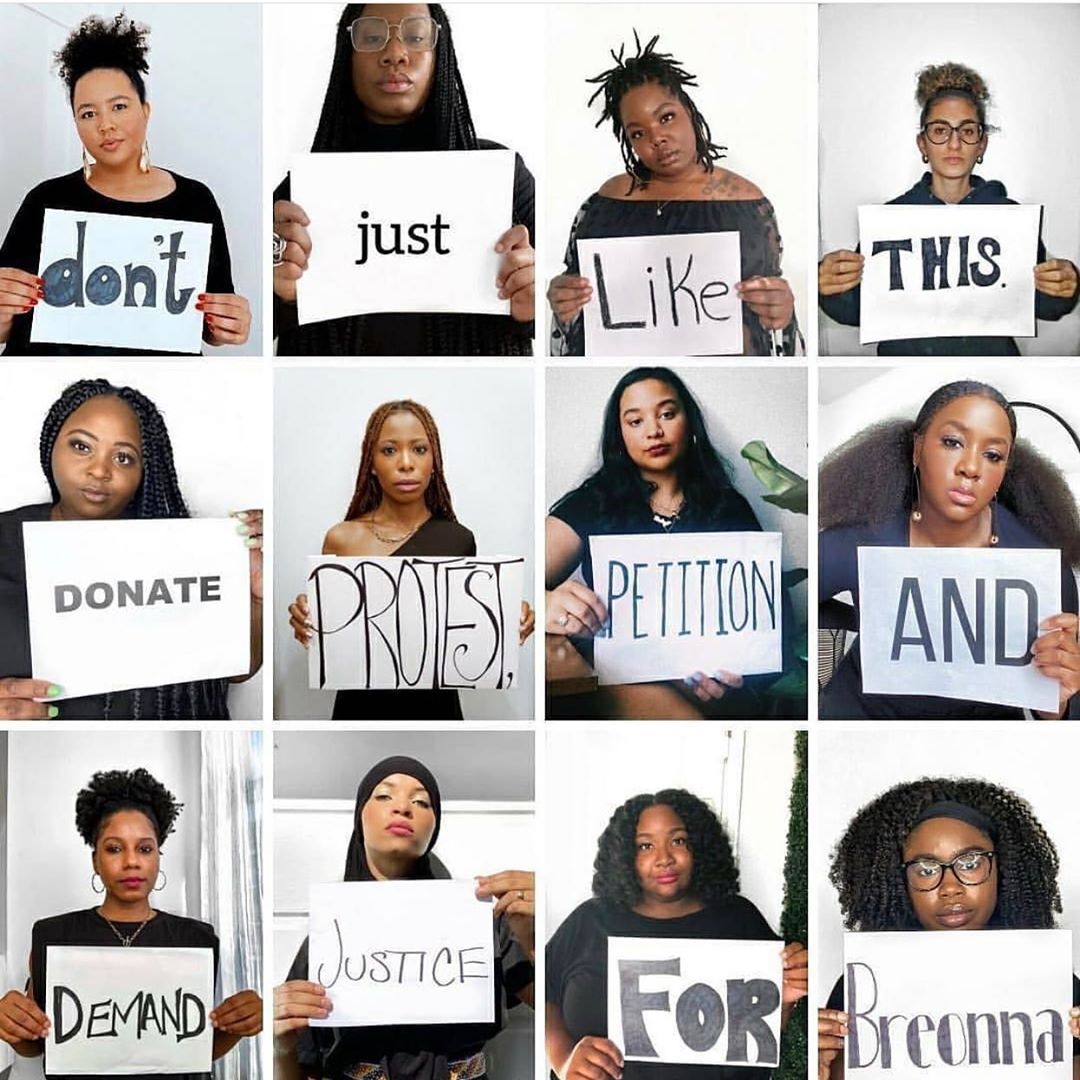 don't
just
Like
THIS.
DONATE
PROTEST,
PETITION
AND
DEMAND
JUSTICE
FOR
Breonna